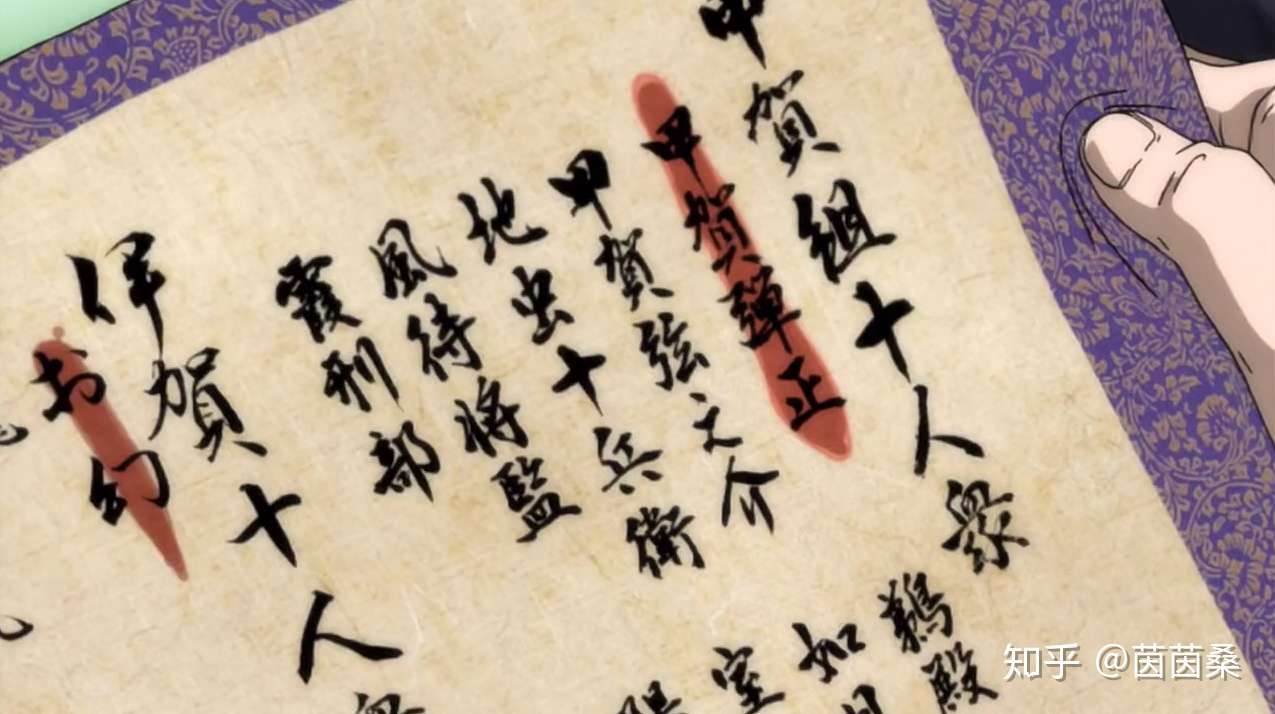 甲賀組十人衆
甲賀彈正
甲賀弦之介
地虫十兵衛
風待将監
霞刑部
鵜殿
如月
室
伊賀十人衆
お幻
知乎 @茵茵桑